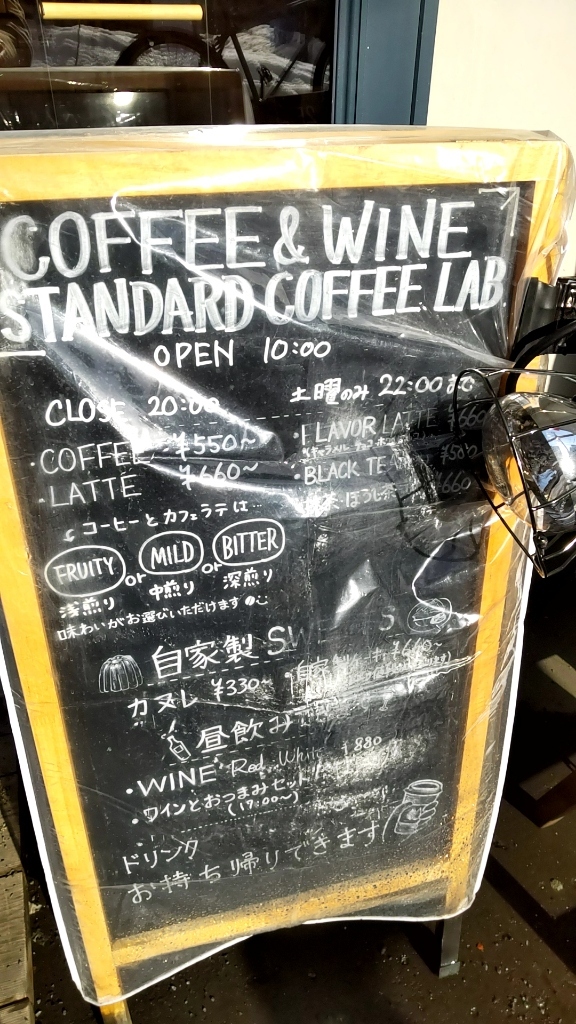 COFFEE & WINE
STANDARD COFFEE LAB
OPEN 10:00
CLOSE 20:00
土曜のみ 22:00まで
・COFFEE ¥550～
・LATTE ¥660～
・FLAVOR LATTE ¥660
・BLACK TEA ¥500
ほうじ茶 ¥660
コーヒーとカフェラテは…
FRUITY or MILD or BITTER
浅煎り 中煎り 深煎り
味わいがお選びいただけます
自家製 SW S
カヌレ ¥330～
・自家製
昼飲み
・WINE Red. White ¥880
・ワインとおつまみセット
(17:00～)
ドリンク
お持ち帰りできます